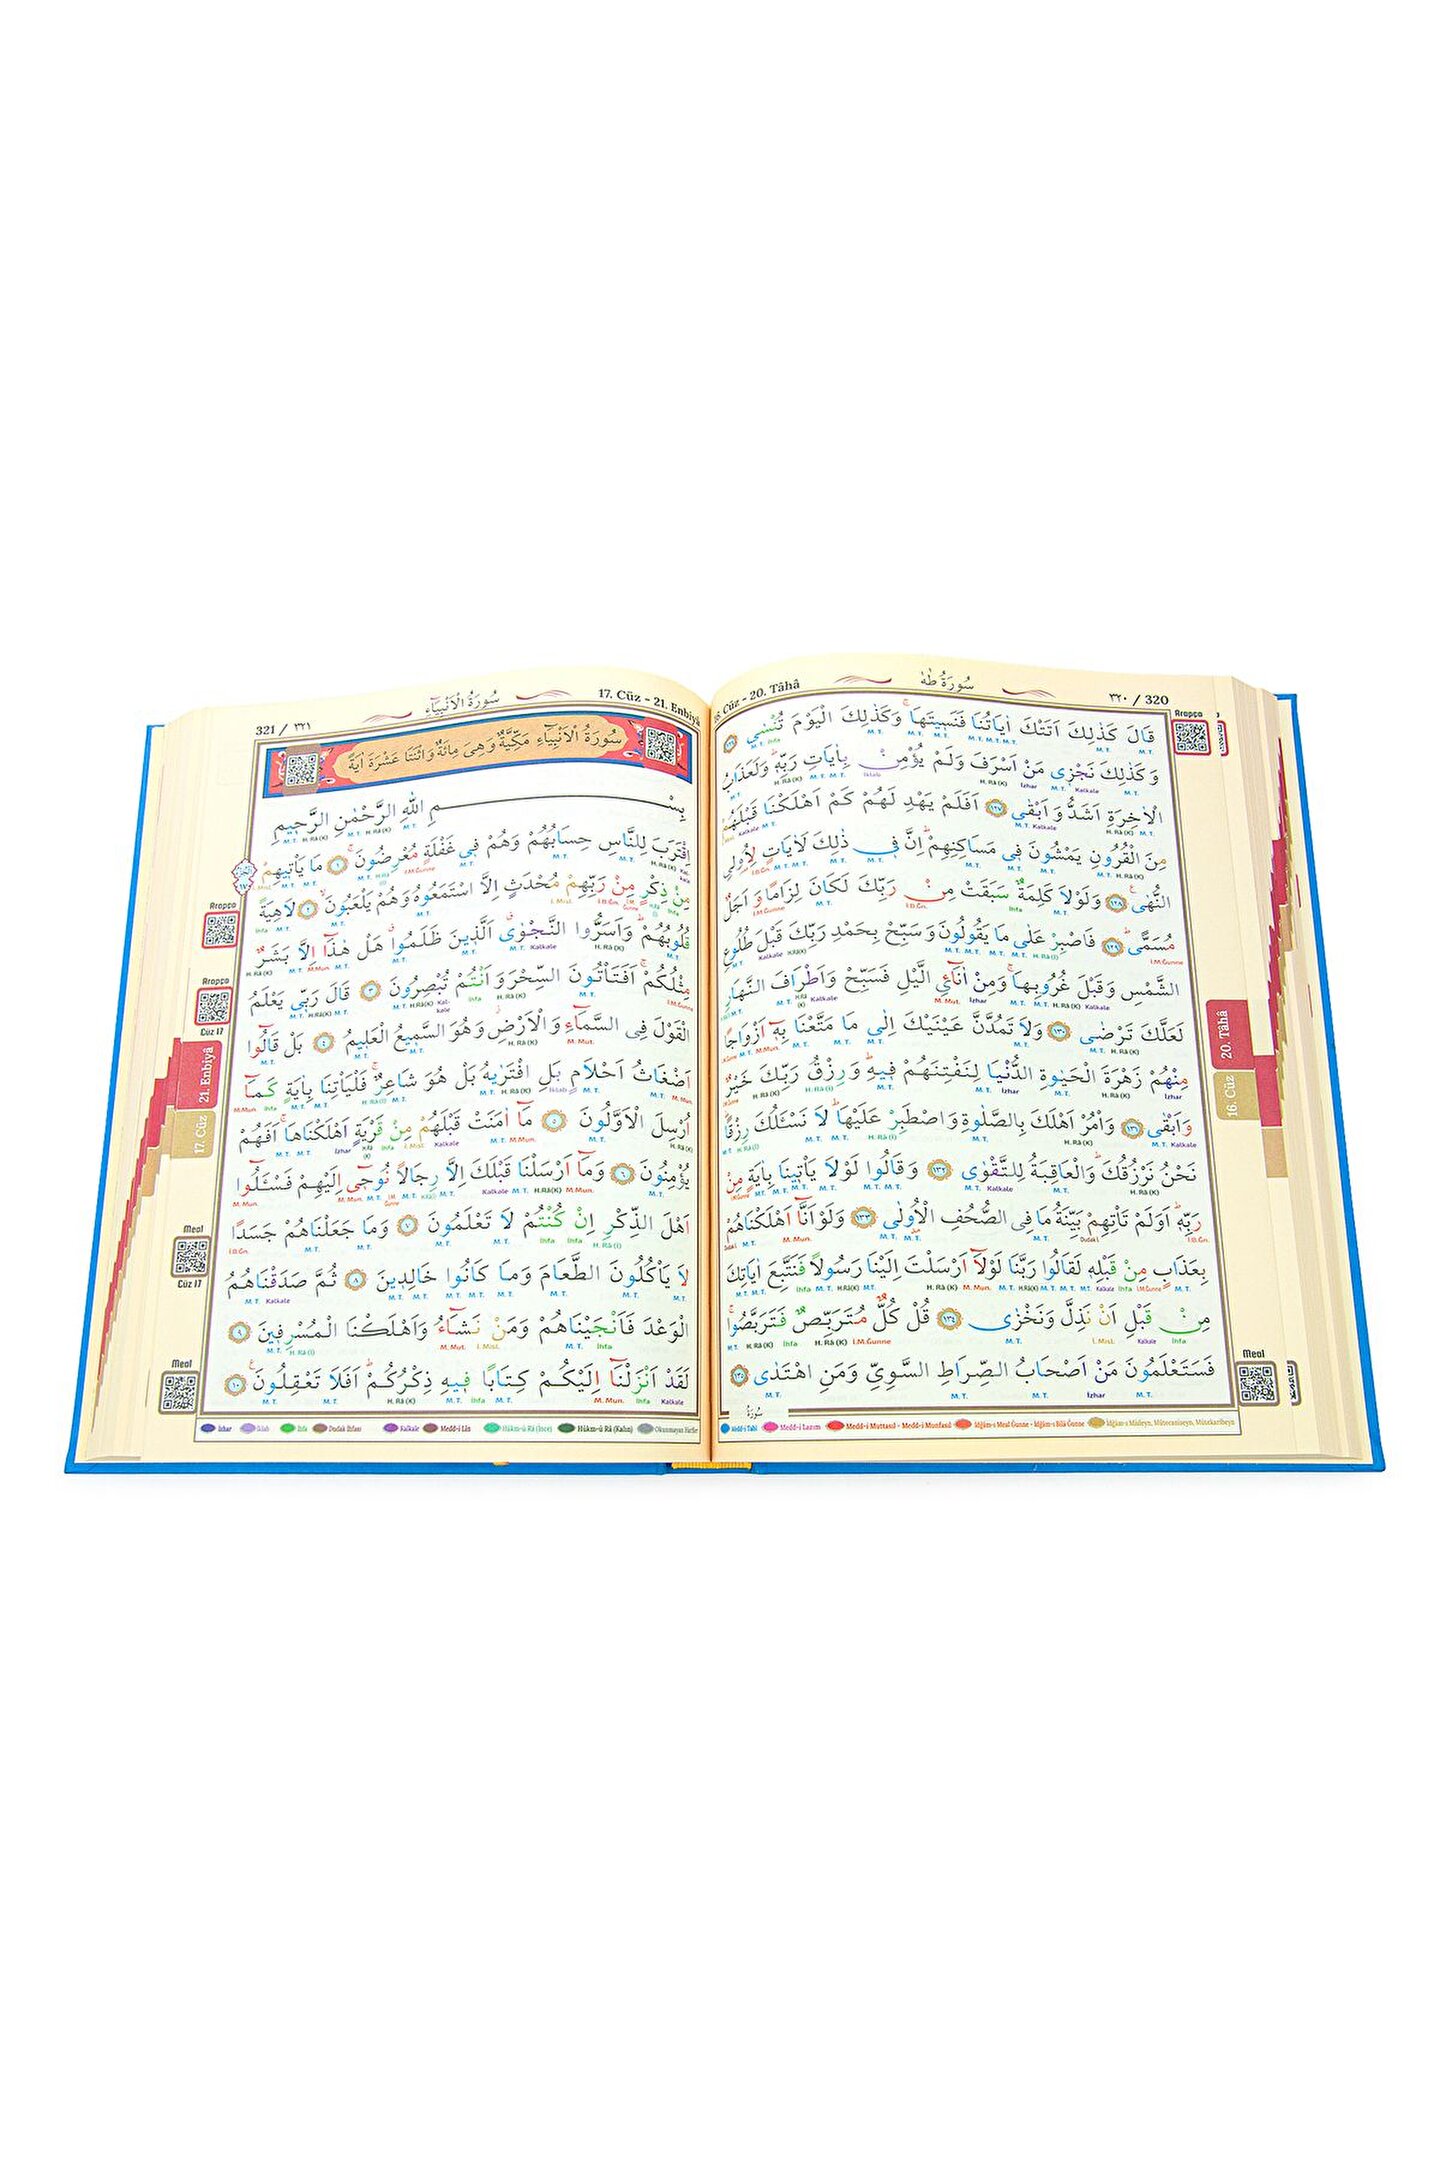 ٣٢٠ / 320
سُورَةُ طٰهٰ
16. Cüz - 20. Tâhâ
قَالَ كَذٰلِكَ اَتَتْكَ اٰيَاتُنَا فَنَسٖيتَهَاۚ وَكَذٰلِكَ الْيَوْمَ تُنْسٰى ﴿١٢٦﴾
وَكَذٰلِكَ نَجْزٖى مَنْ اَسْرَفَ وَلَمْ يُؤْمِنْ بِاٰيَاتِ رَبِّهٖؕ وَلَعَذَابُ
الْاٰخِرَةِ اَشَدُّ وَاَبْقٰى ﴿١٢٧﴾ اَفَلَمْ يَهْدِ لَهُمْ كَمْ اَهْلَكْنَا قَبْلَهُمْ
مِنَ الْقُرُونِ يَمْشُونَ فٖى مَسَاكِنِهِمْؕ اِنَّ فٖى ذٰلِكَ لَاٰيَاتٍ لِاُولِى
النُّهٰىۚ ﴿١٢٨﴾ وَلَوْلَا كَلِمَةٌ سَبَقَتْ مِنْ رَبِّكَ لَكَانَ لِزَامًا وَاَجَلٌ
مُسَمًّىؕ ﴿١٢٩﴾ فَاصْبِرْ عَلٰى مَا يَقُولُونَ وَسَبِّحْ بِحَمْدِ رَبِّكَ قَبْلَ طُلُوعِ
الشَّمْسِ وَقَبْلَ غُرُوبِهَاۚ وَمِنْ اٰنَائِ الَّيْلِ فَسَبِّحْ وَاَطْرَافَ النَّهَارِ
لَعَلَّكَ تَرْضٰى ﴿١٣٠﴾ وَلَا تَمُدَّنَّ عَيْنَيْكَ اِلٰى مَا مَتَّعْنَا بِهٖٓ اَزْوَاجًا
مِنْهُمْ زَهْرَةَ الْحَيٰوةِ الدُّنْيَا لِنَفْتِنَهُمْ فٖيهِؕ وَرِزْقُ رَبِّكَ خَيْرٌ
وَاَبْقٰى ﴿١٣١﴾ وَأْمُرْ اَهْلَكَ بِالصَّلٰوةِ وَاصْطَبِرْ عَلَيْهَاؕ لَا نَسْـَٔلُكَ رِزْقًاؕ
نَحْنُ نَرْزُقُكَؕ وَالْعَاقِبَةُ لِلتَّقْوٰى ﴿١٣٢﴾ وَقَالُوا لَوْلَا يَأْتٖينَا بِاٰيَةٍ مِنْ
رَبِّهٖؕ اَوَلَمْ تَأْتِهِمْ بَيِّنَةُ مَا فِى الصُّحُفِ الْاُولٰى ﴿١٣٣﴾ وَلَوْ اَنَّٓا اَهْلَكْنَاهُمْ
بِعَذَابٍ مِنْ قَبْلِهٖ لَقَالُوا رَبَّنَا لَوْلَٓا اَرْسَلْتَ اِلَيْنَا رَسُولًا فَنَتَّبِعَ اٰيَاتِكَ
مِنْ قَبْلِ اَنْ نَذِلَّ وَنَخْزٰى ﴿١٣٤﴾ قُلْ كُلٌّ مُتَرَبِّصٌ فَتَرَبَّصُواۚ
فَسَتَعْلَمُونَ مَنْ اَصْحَابُ الصِّرَاطِ السَّوِىِّ وَمَنِ اهْتَدٰى ﴿١٣٥﴾
Medd-i Tabî Medd-i Lazım Medd-i Muttasıl - Medd-i Munfasıl İdğam-ı Meal Ğunne - İdğam-ı Bilâ Ğunne İdğam-ı Misleyn, Mütecaniseyn, Mütekaribeyn
Arapça
20. Tâhâ
16. Cüz
Meal
17. Cüz - 21. Enbiyâ
سُورَةُ الْاَنْبِيَٓاءِ
321 / ٣٢١
سُورَةُ الْاَنْبِيَٓاءِ مَكِّيَّةٌ وَهِىَ مِائَةٌ وَاثْنَتَا عَشْرَةَ اٰيَةً
بِسْمِ اللّٰهِ الرَّحْمٰنِ الرَّحٖيمِ
اِقْتَرَبَ لِلنَّاسِ حِسَابُهُمْ وَهُمْ فٖى غَفْلَةٍ مُعْرِضُونَۚ ﴿١﴾ مَا يَأْتٖيهِمْ
مِنْ ذِكْرٍ مِنْ رَبِّهِمْ مُحْدَثٍ اِلَّا اسْتَمَعُوهُ وَهُمْ يَلْعَبُونَۙ ﴿٢﴾ لَاهِيَةً
قُلُوبُهُمْؕ وَاَسَرُّوا النَّجْوٰىۗ اَلَّذٖينَ ظَلَمُواۗ هَلْ هٰذَٓا اِلَّا بَشَرٌ
مِثْلُكُمْۚ اَفَتَأْتُونَ السِّحْرَ وَاَنْتُمْ تُبْصِرُونَ ﴿٣﴾ قَالَ رَبّٖى يَعْلَمُ
الْقَوْلَ فِى السَّمَٓاءِ وَالْاَرْضِؗ وَهُوَ السَّمٖيعُ الْعَلٖيمُ ﴿٤﴾ بَلْ قَالُٓوا
اَضْغَاثُ اَحْلَامٍ بَلِ افْتَرٰيهُ بَلْ هُوَ شَاعِرٌۚ فَلْيَأْتِنَا بِاٰيَةٍ كَمَٓا
اُرْسِلَ الْاَوَّلُونَ ﴿٥﴾ مَٓا اٰمَنَتْ قَبْلَهُمْ مِنْ قَرْيَةٍ اَهْلَكْنَاهَاۚ اَفَهُمْ
يُؤْمِنُونَ ﴿٦﴾ وَمَٓا اَرْسَلْنَا قَبْلَكَ اِلَّا رِجَالًا نُوحٖٓى اِلَيْهِمْ فَسْـَٔلُٓوا
اَهْلَ الذِّكْرِ اِنْ كُنْتُمْ لَا تَعْلَمُونَ ﴿٧﴾ وَمَا جَعَلْنَاهُمْ جَسَدًا
لَا يَأْكُلُونَ الطَّعَامَ وَمَا كَانُوا خَالِدٖينَ ﴿٨﴾ ثُمَّ صَدَقْنَاهُمُ
الْوَعْدَ فَاَنْجَيْنَاهُمْ وَمَنْ نَشَٓاءُ وَاَهْلَكْنَا الْمُسْرِفٖينَ ﴿٩﴾
لَقَدْ اَنْزَلْنَٓا اِلَيْكُمْ كِتَابًا فٖيهِ ذِكْرُكُمْؕ اَفَلَا تَعْقِلُونَۚ ﴿١٠﴾
İzhar İklab İhfa Dudak İhfası Kalkale Medd-i Lîn Hükm-ü Râ (İnce) Hükm-ü Râ (Kalın) Okunmayan Harfler
Arapça
Arapça
Cüz 17
21. Enbiyâ
17. Cüz
Meal
Cüz 17
Meal